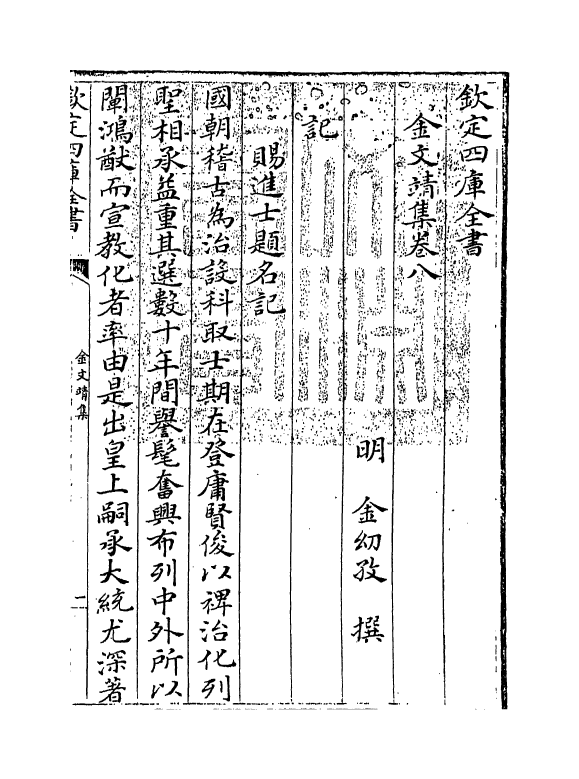 欽定四庫全書
金文靖集卷八
明 金幼孜 撰
記
賜進士題名記
國朝稽古為治設科取士期在登庸賢俊以裨治化列
聖相承益重其選數十年間譽髦奮興布列中外所以
闡鴻猷而宣教化者率由是出皇上嗣承大統尤深著
欽定四庫全書
金文靖集